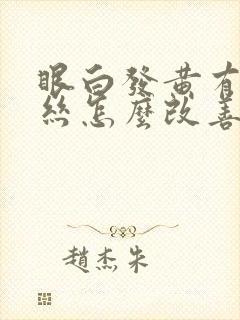 眼白發黃有
絲怎麼改善
趙杰朱